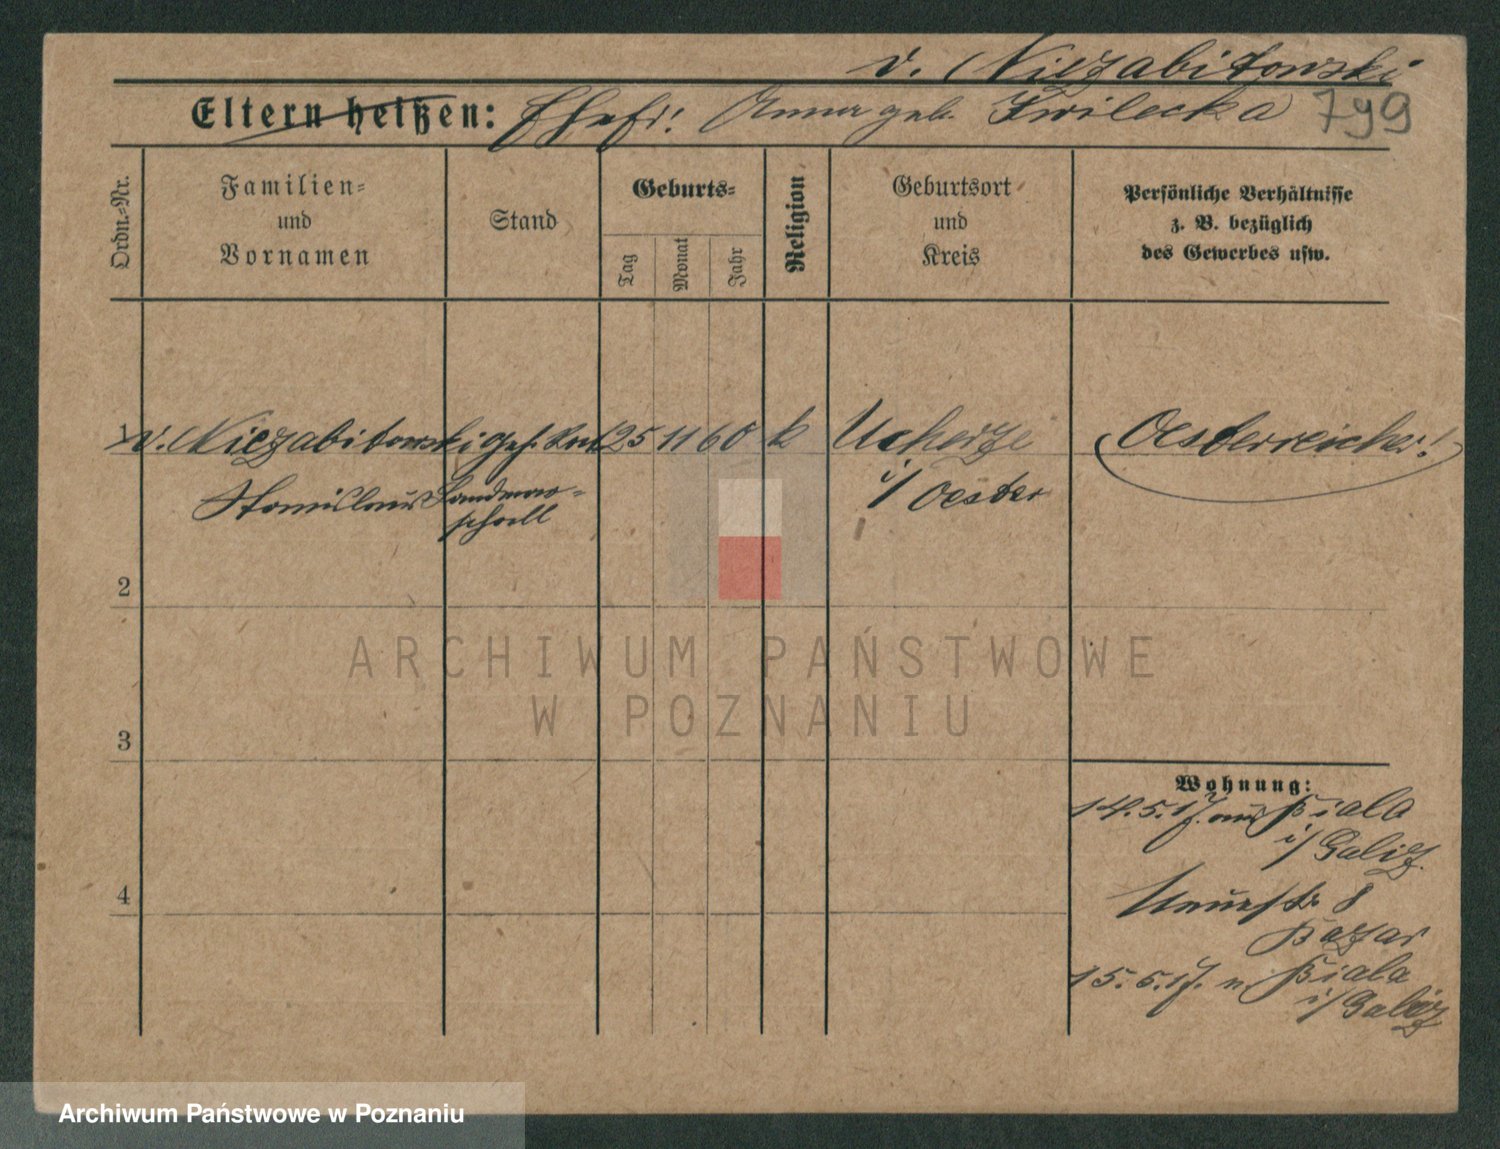 v. Niezabitowski
Eltern heißen: Ehefr: Anna geb. Kwilecka 799
Ordn.=Nr.
Familien=
und
Vornamen
Stand
Geburts=
Tag
Monat
Jahr
Religion
Geburtsort
und
Kreis
Persönliche Verhältnisse
z. B. bezüglich
des Gewerbes usw.
1 v. Niezabitowski Geh. 25 11 60 k Oesterreicher!
Stanislaus Landmar- i/ Oester
schall
2
ARCHIWUM PAŃSTWOWE
W POZNANIU
3
Wohnung:
14.5.17. aus Biala
i/ Galiz.
4
Neuestr 8
Bazar
15.5.17. n Biala
i/ Galiz
Archiwum Państwowe w Poznaniu